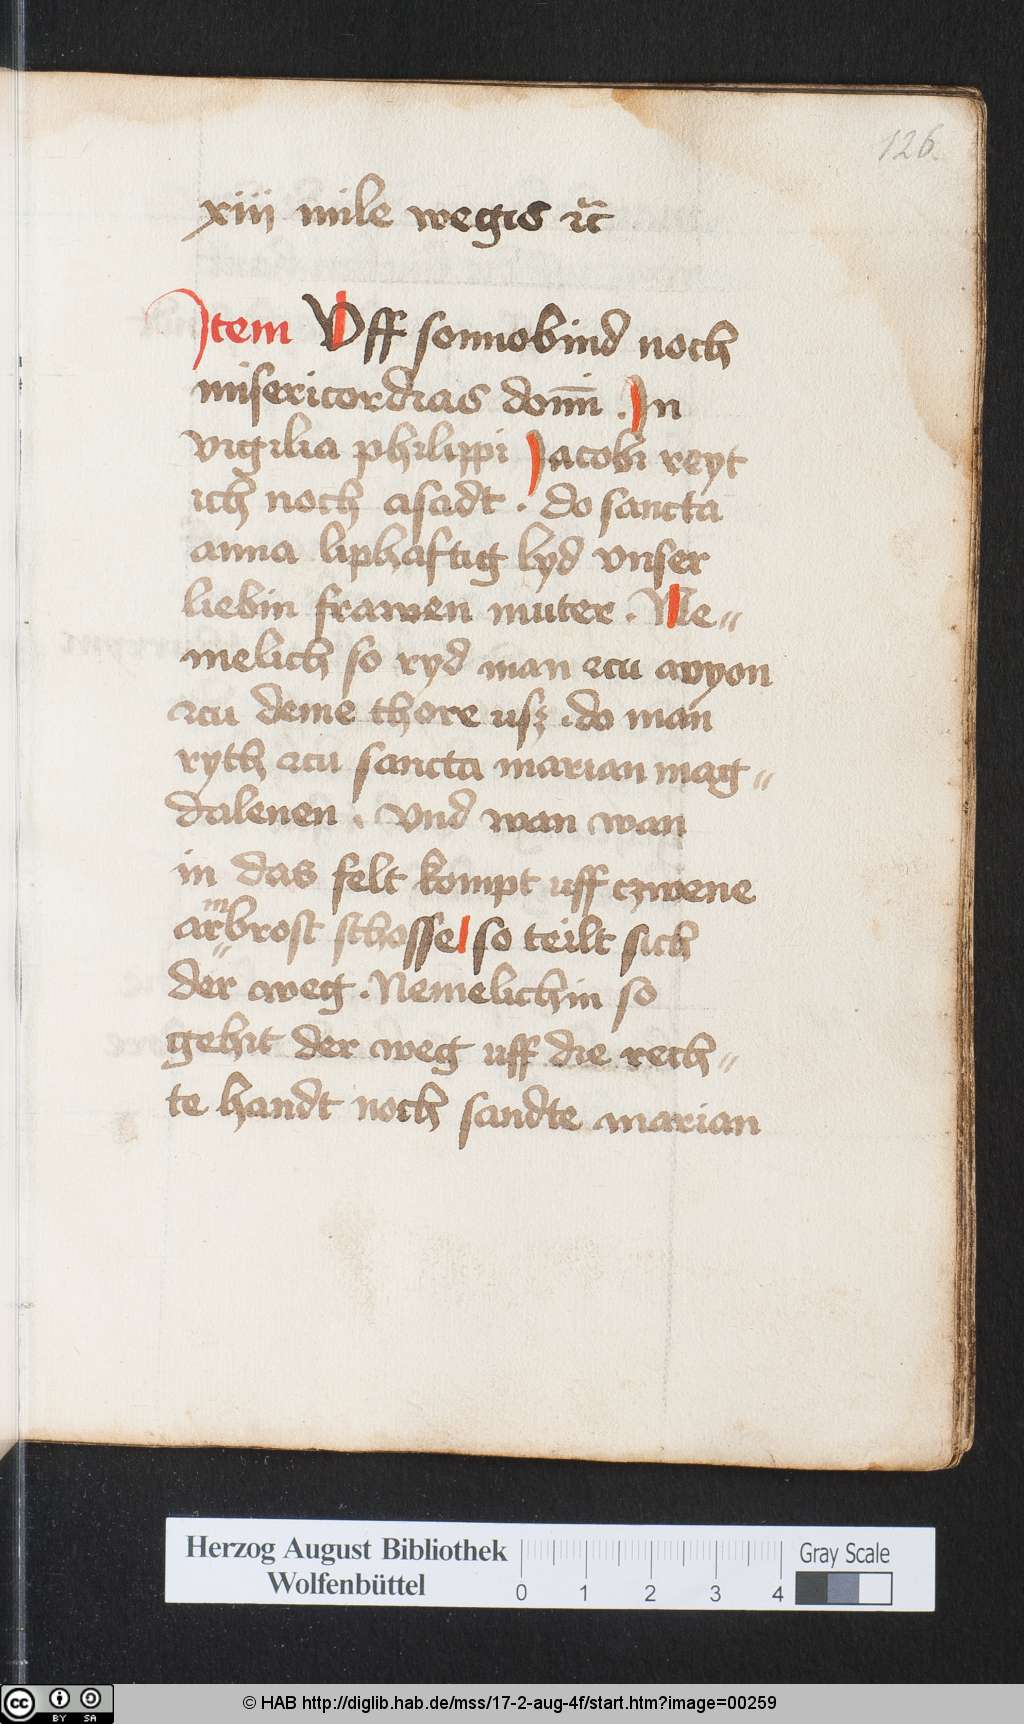 126.
xiii mile wegis ꝛc̃
Item Uff sonnobind noch
misericordias dom̅i . In
vigilia philippi Jacobi reyt
ich noch asadt . do sancta
anna liphaftig lyd vnser
liebin frawen muter . Ne⸗
melich so ryd man zcu avyon
zcu deme thore usz . do man
ryth zcu sancta marian mag⸗
dalenen . vnd wan wan
in das felt kompt uff czwene
arbrost schosse so teilt sich
m
der weg . Nemelichin so
gehit der weg uff die rech⸗
te handt noch sandte marian
Herzog August Bibliothek
Wolfenbüttel
0 1 2 3 4
Gray Scale
cc BY SA
© HAB http://diglib.hab.de/mss/17-2-aug-4f/start.htm?image=00259